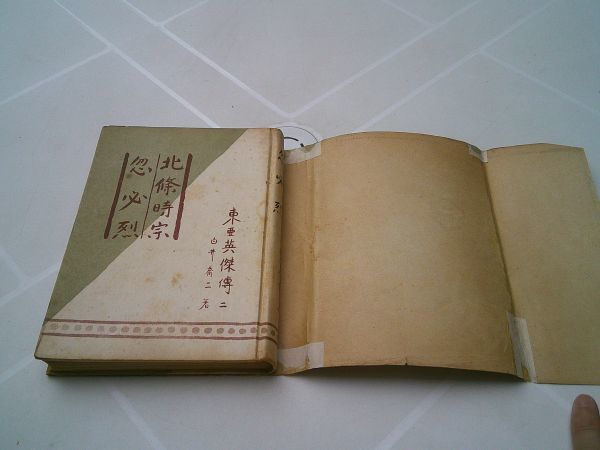 北條時宗
忽必烈
東亜英傑傳 二
白井喬二 著
忽必烈